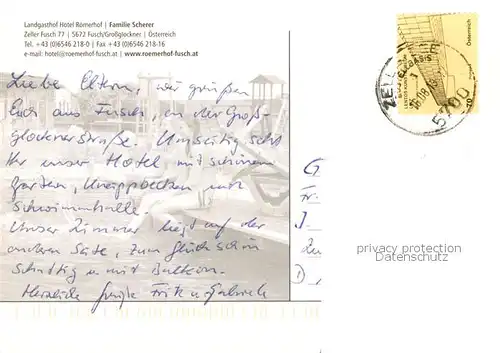 Landgasthof Hotel Römerhof | Familie Scherer
Zeller Fusch 77 | 5672 Fusch/Großglockner | Österreich
Tel. +43 (0)6546 218-0 | Fax +43 (0)6546 218-16
e-mail: hotel@roemerhof-fusch.at | www.roemerhof-fusch.at
Liebe Eltern, wir grüßen
Euch aus Fusch, an der Groß-
glocknerstraße. Umseitig seht
Ihr unser Hotel mit schönem
Garten, Kneippbecken und
Schwimmhalle.
Unser Zimmer liegt auf der
anderen Seite, zum Glück schön
schattig u. mit Balkon.
Herzliche Grüße Fritz u. Gabriele
ZELL
5700
Österreich
privacy protection
Datenschutz